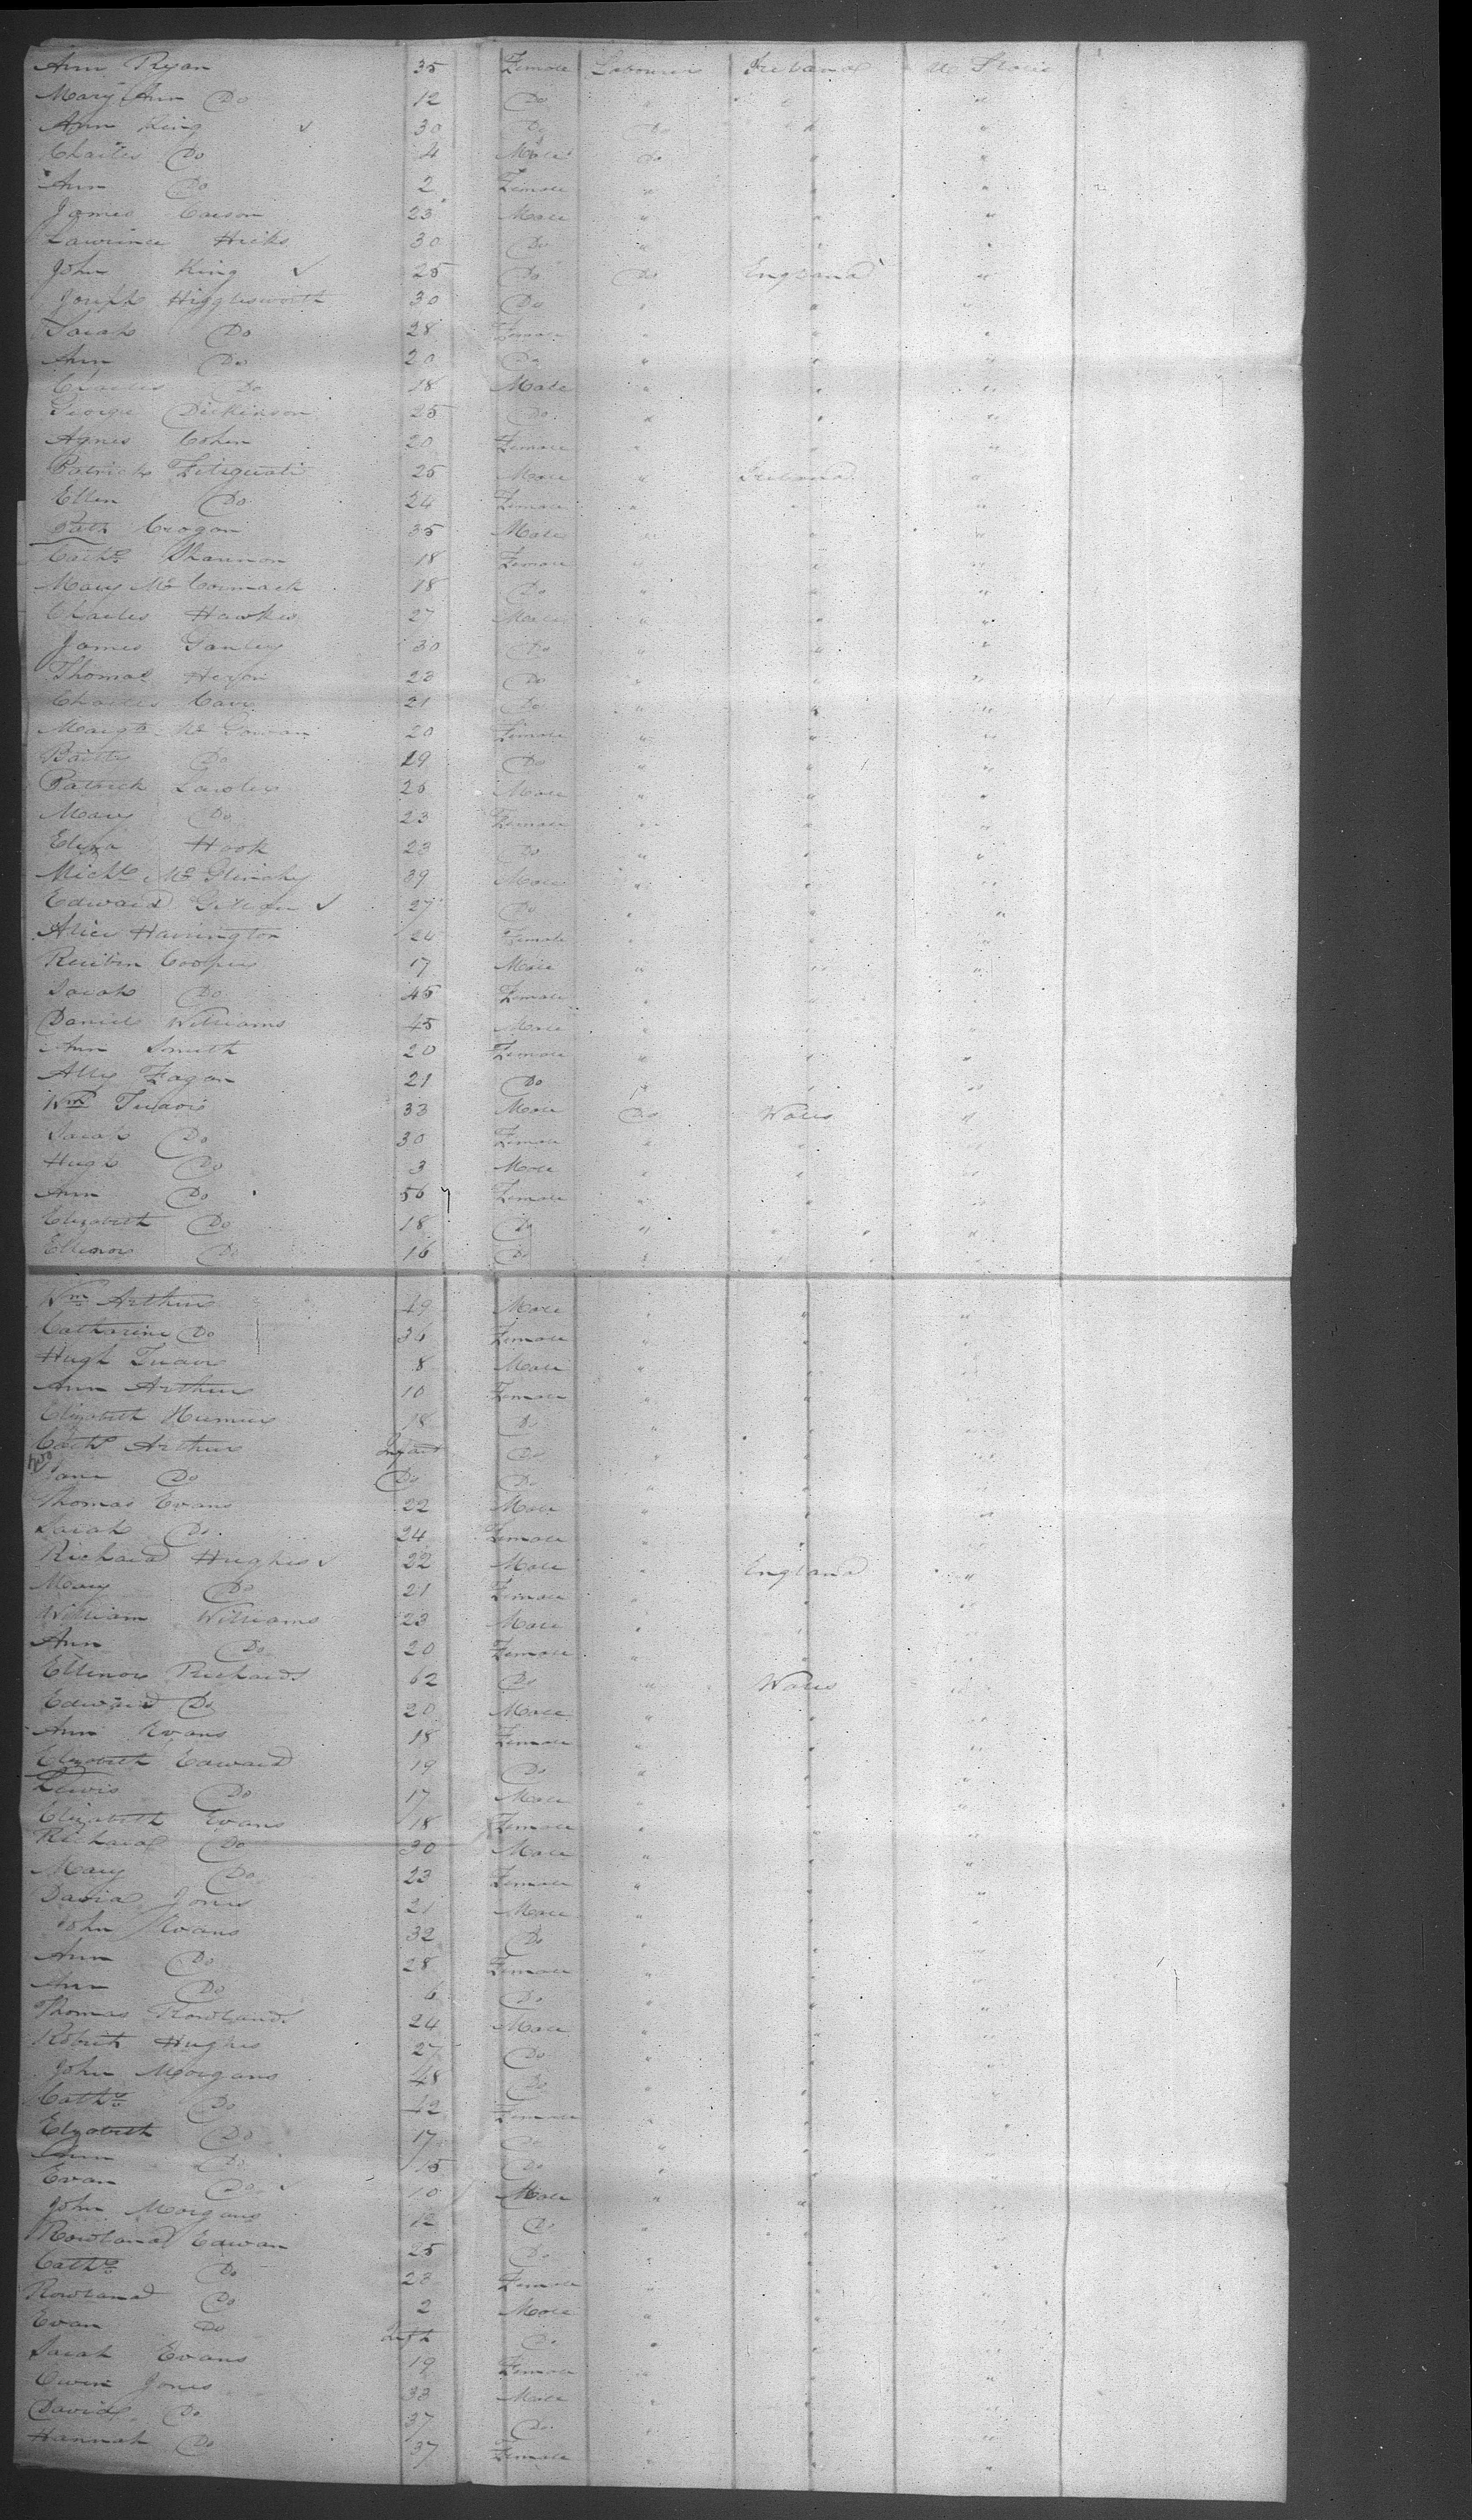 Ann Ryan 35 Female Labourer Ireland U States
Mary Ann Do 12 Do " " "
Ann King ✓ 30 Do Do " "
Charles Do 4 Male Do " "
Ann Do 2 Female " " "
James Carson 23 Male " " "
Lawrence Hicks 30 Do " " "
John King ✓ 25 Do Do England "
Joseph Higglesworth 30 Do " " "
Sarah Do 28 Female " " "
Ann Do 20 Do " " "
Charles Do 18 Male " " "
George Dickinson 25 Do " " "
Agnes Cohen 20 Female " " "
Patrick 25 Male " Ireland "
Ellen Do 24 Female " " "
Patk Crogan 35 Male " " "
Cathe Shannon 18 Female " " "
Mary Mc Cormack 18 Do " " "
Charles Hawkes 27 Male " " "
James Ganley 30 Do " " "
Thomas 23 Do " " "
Charles 21 Do " " "
Margt Mc Gowan 20 Female " " "
Do 19 Do " " "
Patrick Lawler 26 Male " " "
Mary Do 23 Female " " "
Eliza Hook 23 Do " " "
Michl Mc Glinchy 39 Male " " "
Edward ✓ 27 Do " " "
Alice Harrington 24 Female " " "
Reuben Cooper 17 Male " " "
Sarah Do 45 Female " " "
Daniel Williams 45 Male " " "
Ann Smith 20 Female " " "
Ally Fagan 21 Do " " "
Wm 33 Male Do Wales "
Sarah Do 30 Female " " "
Hugh Do 3 Male " " "
Ann Do 56 Female " " "
Elizabeth Do 18 Do " " "
Ellenor Do 16 Do " " "
Wm Arthur 49 Male " " "
Catharine Do 36 Female " " "
Hugh 8 Male " " "
Ann Arthur 10 Female " " "
Elizabeth 18 Do " " "
Cathe Arthur Infant Do " " "
Jane Do Do Do " " "
Thomas Evans 22 Male " " "
Sarah Do 24 Female " " "
Richard Hughes ✓ 22 Male " England "
Mary Do 21 Female " " "
William Williams 23 Male " " "
Ann Do 20 Female " " "
Ellenor Richards 62 Do " Wales "
Edward Do 20 Male " " "
Ann Evans 18 Female " " "
Elizabeth Edward 19 Do " " "
Lewis Do 17 Male " " "
Elizabeth Evans 18 Female " " "
Richard Do 30 Male " " "
Mary Do 23 Female " " "
David Jones 21 Male " " "
John Evans 32 Do " " "
Ann Do 28 Female " " "
Ann Do 6 Do " " "
Thomas Rowlands 24 Male " " "
Robert Hughes 27 Do " " "
John Morgans 48 Do " " "
Cathe Do 42 Female " " "
Elizabeth Do 17 Do " " "
Ann Do 15 Do " " "
Evan Do ✓ 10 Male " " "
John Morgans 12 Do " " "
Rowland Edwan 25 Do " " "
Cathe Do 23 Female " " "
Rowland Do 2 Male " " "
Evan Do Inft Do " " "
Sarah Evans 19 Female " " "
Owen Jones 33 Male " " "
David Do 37 Do " " "
Hannah Do 37 Female " " "